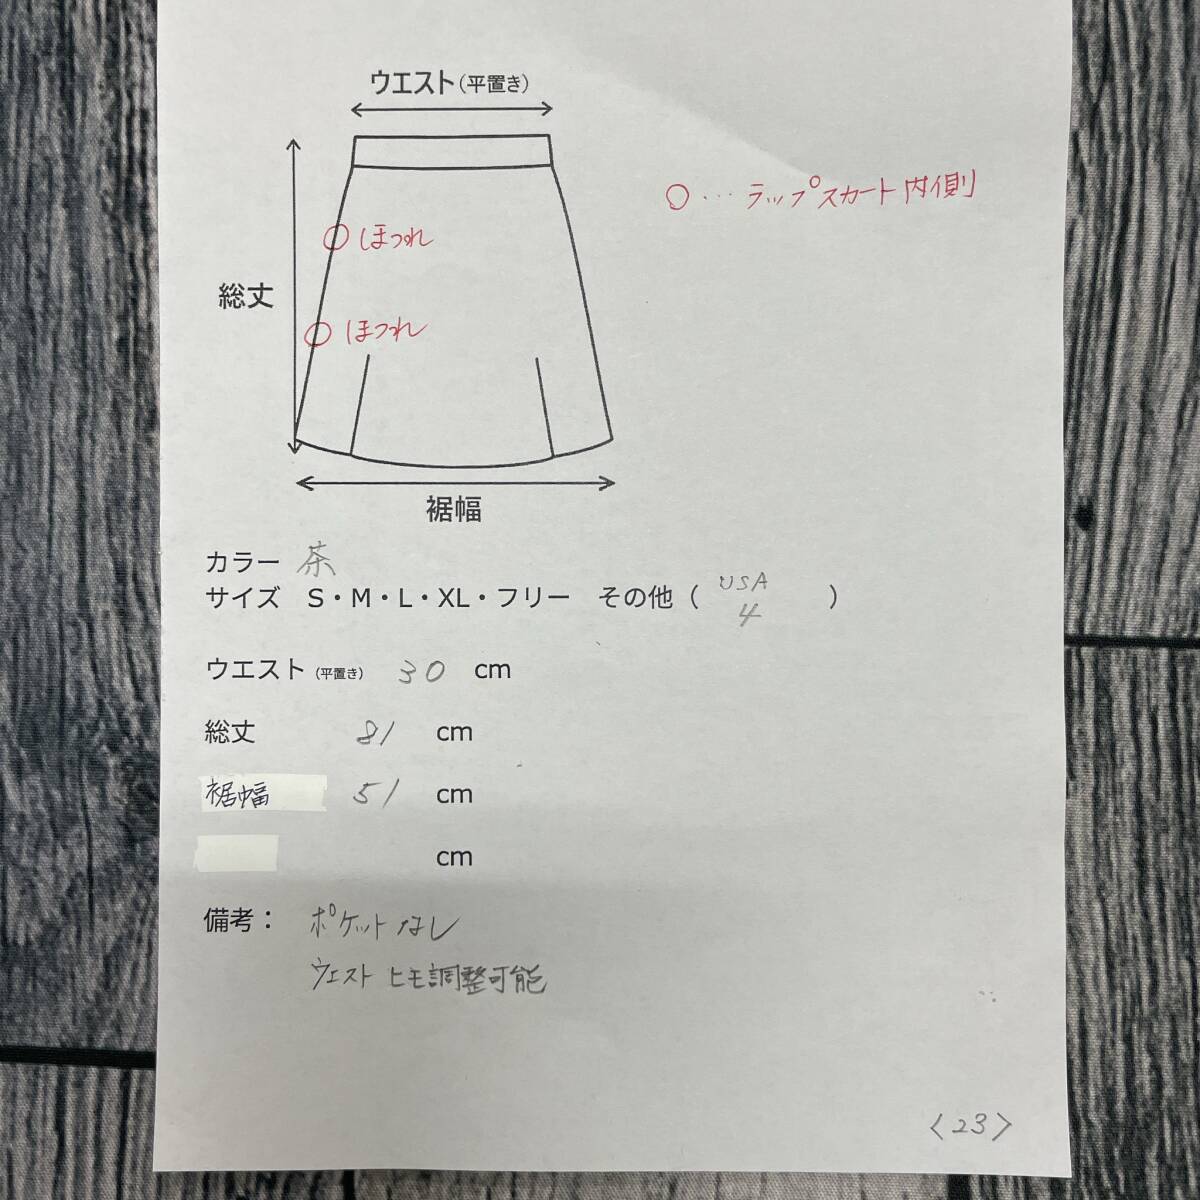 ウエスト(平置き)
○… ラップスカート内側
○ほつれ
総丈
○ほつれ
裾幅
カラー 茶
サイズ S・M・L・XL・フリー その他（ USA 4 ）
ウエスト(平置き) 30 cm
総丈 81 cm
裾幅 51 cm
cm
備考： ポケットなし
ウエスト ヒモ調整可能
〈23〉